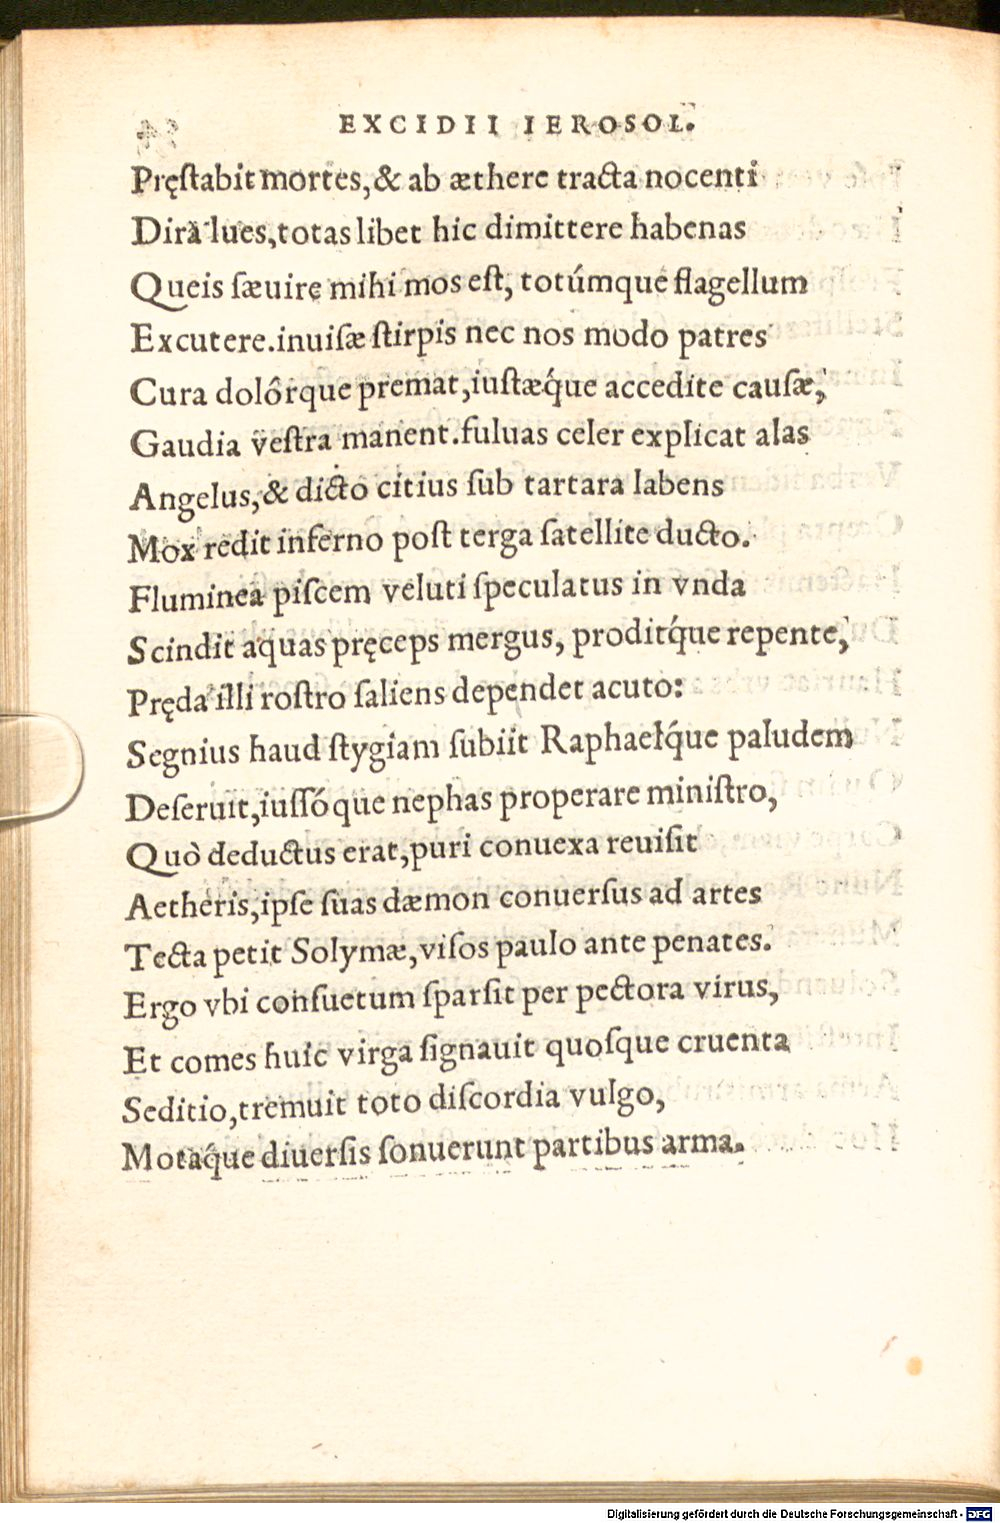 EXCIDII IEROSOL.
Pręſtabit mortes, & ab æthere tracta nocenti
Dira lues, totas libet hic dimittere habenas
Queis ſæuire mihi mos eſt, totúmque flagellum
Excutere. inuiſæ ſtirpis nec nos modo patres
Cura dolôrque premat, iuſtæq́ue accedite cauſæ,
Gaudia veſtra manent. fuluas celer explicat alas
Angelus, & dicto citius ſub tartara labens
Mox redit inferno poſt terga ſatellite ducto.
Fluminea piſcem veluti ſpeculatus in vnda
Scindit aquas pręceps mergus, proditq́ue repente,
Pręda illi roſtro ſaliens dependet acuto:
Segnius haud ſtygiam ſubiit Raphaelq́ue paludem
Deſeruit, iuſſóque nephas properare miniſtro,
Quò deductus erat, puri conuexa reuiſit
Aetheris, ipſe ſuas dæmon conuerſus ad artes
Tecta petit Solymæ, viſos paulo ante penates.
Ergo vbi conſuetum ſparſit per pectora virus,
Et comes huic virga ſignauit quoſque cruenta
Seditio, tremuit toto diſcordia vulgo,
Motaq́ue diuerſis ſonuerunt partibus arma.
Digitalisierung gefördert durch die Deutsche Forschungsgemeinschaft - DFG